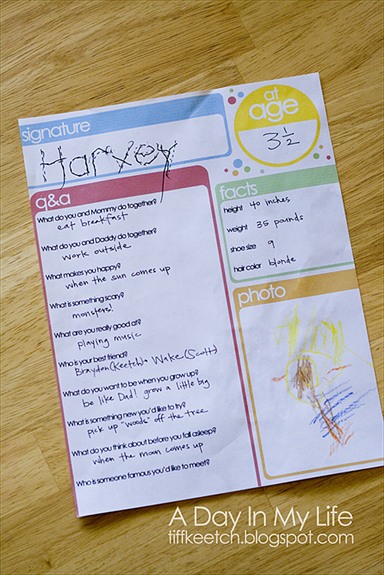 signature
Harvey
at
age
3½
q&a
What do you and Mommy do together?
eat breakfast
What do you and Daddy do together?
work outside
What makes you happy?
when the sun comes up
What is something scary?
monsters!
What are you really good at?
Playing music
Who is your best friend?
Brayden (Keetch) + Wake (Scott)
What do you want to be when you grow up?
be like Dad! grow a little big
What is something new you'd like to try?
pick up "woods" off the tree
What do you think about before you fall asleep?
when the moon comes up
Who is someone famous you'd like to meet?
facts
height 40 inches
weight 35 pounds
shoe size 9
hair color blonde
photo
A Day In My Life
tiffkeetch.blogspot.com